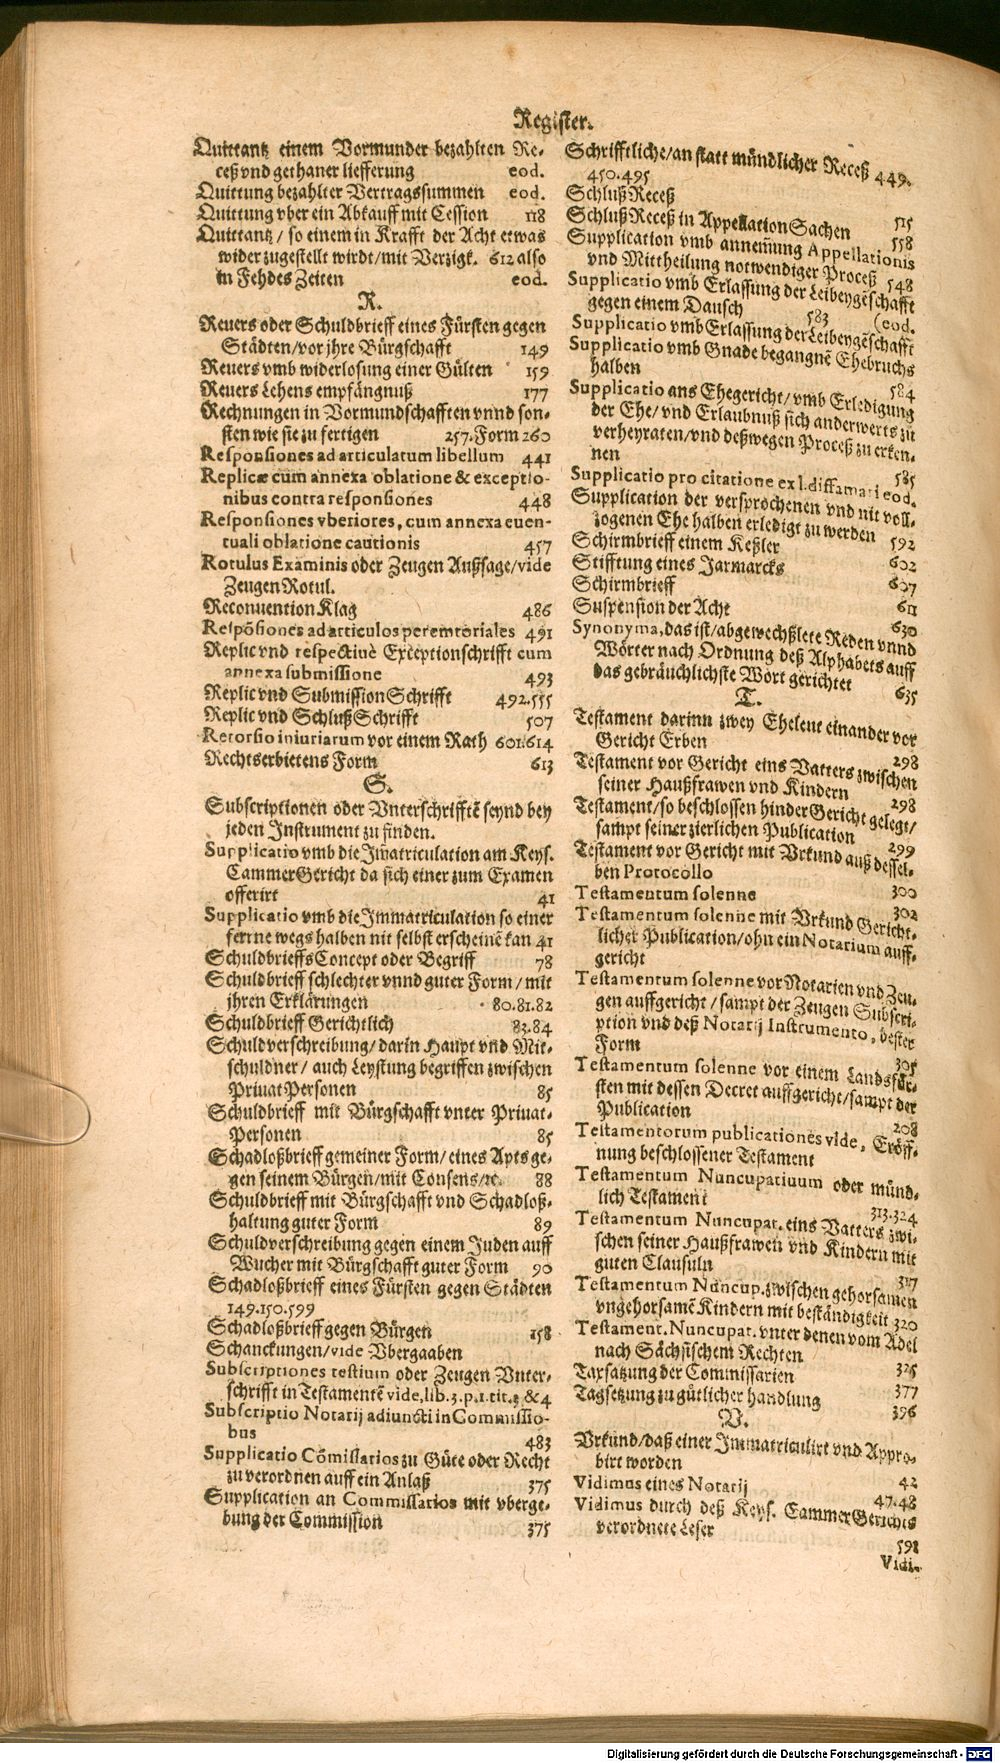 Register.
Quittantz einem Vormunder bezahlten Re-
ceß vnd gethaner lieferung eod.
Quittung bezahlter Vertragssummen eod.
Quittung vber ein Abkauff mit Cession 118
Quittantz / so einem in Krafft der Acht etwas
wider zugestellt wirdt/mit Verzigk. 612 also
in Fehdes Zeiten eod.
R.
Reuers oder Schuldbrieff eines Fürsten gegen
Städten/vor jhre Bürgschafft 149
Reuers vmb widerlosung einer Gülten 159
Reuers Lehens empfängnuß 177
Rechnungen in Vormundschafften vnnd son-
sten wie sie zu fertigen 257. Form 260
Responsiones ad articulatum libellum 441
Replicæ cum annexa oblatione & exceptio-
nibus contra responsiones 448
Responsiones vberiores, cum annexa euen-
tuali oblatione cautionis 457
Rotulus Examinis oder Zeugen Außsage/vide
Zeugen Rotul.
Reconuention Klag 486
Respōsiones ad articulos peremtoriales 491
Replic vnd respectiuè Exceptionschrifft cum
annexa submissione 493
Replic vnd Submission Schrifft 492.555
Replic vnd Schluß Schrifft 507
Retorsio iniuriarum vor einem Rath 601.614
Rechtserbietens Form 613
S.
Subscriptionen oder Vnterschrifftē seynd bey
jeden Instrument zu finden.
Supplicatio vmb die Im̄atriculation am Keys.
CammerGericht da sich einer zum Examen
offerirt 41
Supplicatio vmb die Immatriculation so einer
ferrne wegs halben nit selbst erscheinē kan 41
Schuldbrieffs Concept oder Begriff 78
Schuldbrieff schlechter vnnd guter Form / mit
jhren Erklärungen 80.81.82
Schuldbrieff Gerichtlich 83.84
Schuldverschreibung/ darin Haupt vnd Mit-
schuldner / auch Leystung begriffen zwischen
Priuat Personen 85
Schuldbrieff mit Bürgschafft vnter Priuat-
Personen 85
Schadloßbrieff gemeiner Form/ eines Apts ge-
gen seinem Bürgen/mit Consens/ꝛc. 88
Schuldbrieff mit Bürgschafft vnd Schadloß-
haltung guter Form 89
Schuldverschreibung gegen einem Juden auff
Wucher mit Bürgschafft guter Form 90
Schadloßbrieff eines Fürsten gegen Städten
149.150.599
Schadloßbrieff gegen Bürgen 158
Schanckungen/vide Vbergaaben
Subscriptiones testium oder Zeugen Vnter-
schrifft in Testamentē vide, lib.3.p.1.tit.3 & 4
Subscriptio Notarij adiuncti in Commissio-
bus 483
Supplicatio Cōmissarios zu Güte oder Recht
zu verordnen auff ein Anlaß 375
Supplication an Commissarios mit vberge-
bung der Commission 375
Schrifftliche/an statt mündlicher Receß 449.
450.495
Schluß Receß 515
Schluß Receß in Appellation Sachen 558
Supplication vmb annem̄ung Appellationis
vnd Mittheilung notwendiger Proceß 548
Supplicatio vmb Erlassung der Leibeygēschafft
gegen einem Dausch 583 (eod.
Supplicatio vmb Erlassung der Leibeygēschafft
Supplicatio vmb Gnade begangnē Ehebruchs
halben 584
Supplicatio ans Ehegericht/ vmb Erledigung
der Ehe/ vnd Erlaubnuß sich anderwerts zu
verheyraten/vnd deßwegen Proceß zu erken-
nen 585
Supplicatio pro citatione ex l. diffamari eod.
Supplication der versprochenen vnd nit voll-
zogenen Ehe halben erledigt zu werden 592
Schirmbrieff einem Keßler 602
Stifftung eines Jarmarcks 607
Schirmbrieff 611
Suspension der Acht 630
Synonyma, das ist/abgewechßlete Reden vnnd
Wörter nach Ordnung deß Alphabets auff
das gebräuchlichste Wort gerichtet 635
T.
Testament darinn zwey Eheleut einander vor
Gericht Erben 298
Testament vor Gericht eins Vatters zwischen
seiner Haußfrawen vnd Kindern 298
Testament/so beschlossen hinder Gericht gelegt/
sampt seiner zierlichen Publication 299
Testament vor Gericht mit Vrkund auß dessel-
ben Protocollo 300
Testamentum solenne 302
Testamentum solenne mit Vrkund Gericht-
licher Publication/ohn ein Notarium auff-
gericht
Testamentum solenne vor Notarien vnd Zeu-
gen auffgericht / sampt der Zeugen Subscri-
ption vnd deß Notarij Instrumento, bester
Form 305
Testamentum solenne vor einem Landsfür-
sten mit dessen Decret auffgericht/sampt der
Publication 208
Testamentorum publicationes vide, Eröff-
nung beschlossener Testament
Testamentum Nuncupatiuum oder münd-
lich Testament 313.324
Testamentum Nuncupat. eins Vatters zwi-
schen seiner Haußfrawen vnd Kindern mit
guten Clausuln 317
Testamentum Nuncup. zwischen gehorsamen
vngehorsamē Kindern mit beständigkeit 320
Testament. Nuncupat. vnter denen vom Adel
nach Sächsischem Rechten 325
Taxsatzung der Commissarien 377
Tagsetzung zu gütlicher handlung 396
V.
Vrkund/daß einer Immatriculirt vnd Appro-
birt worden 42
Vidimus eines Notarij 47.48
Vidimus durch deß Keys. CammerGerichts
verordnete Leser 598
Vidi-
Digitalisierung gefördert durch die Deutsche Forschungsgemeinschaft - DFG